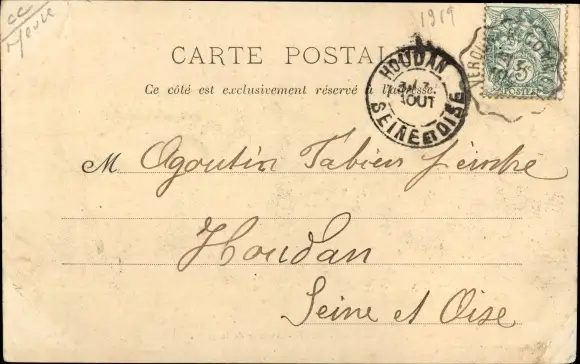 cc
neuve
1919
CARTE POSTALE
Ce côté est exclusivement réservé à l'adresse.
HOUDAN
AOUT
SEINE ET OISE
5
POSTES
M Agoutin Fabien peintre
Houdan
Seine et Oise